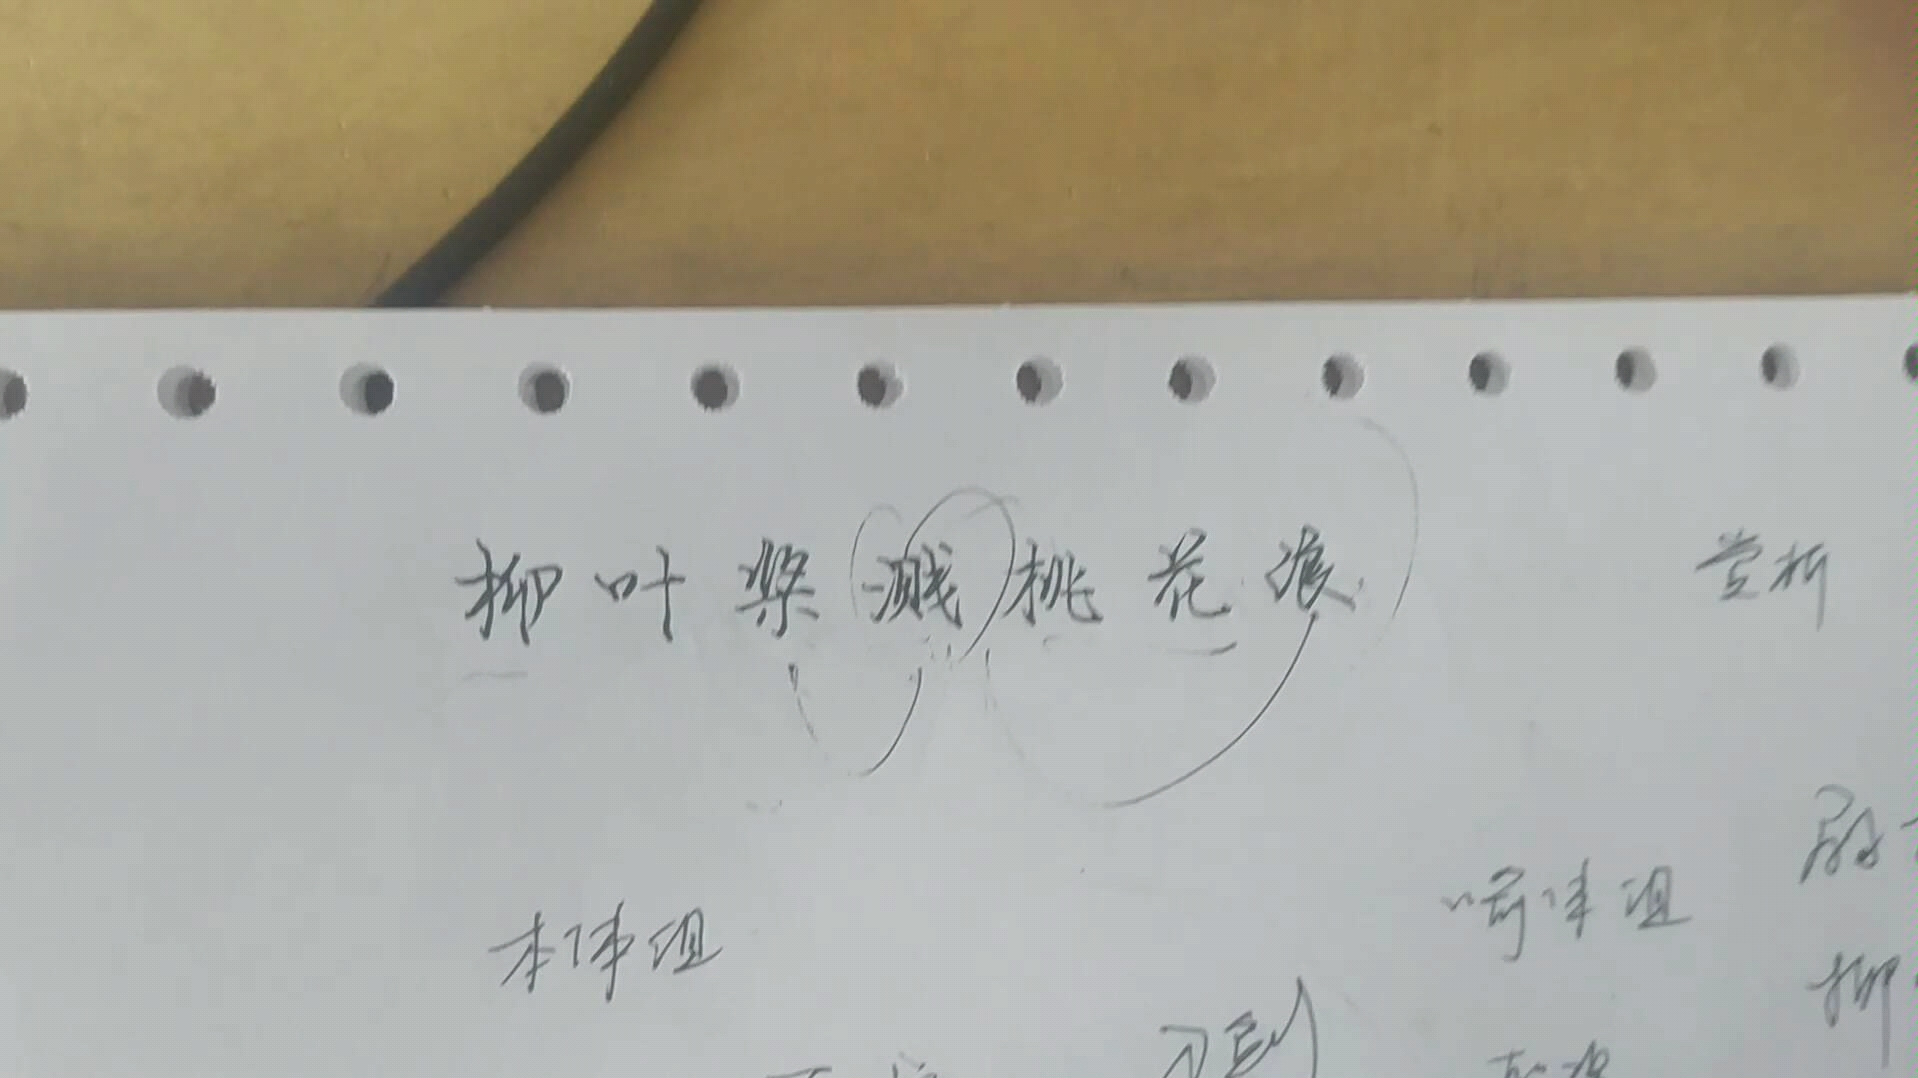 柳叶桨溅桃花浪
赏析
本体组
喻体组
柳